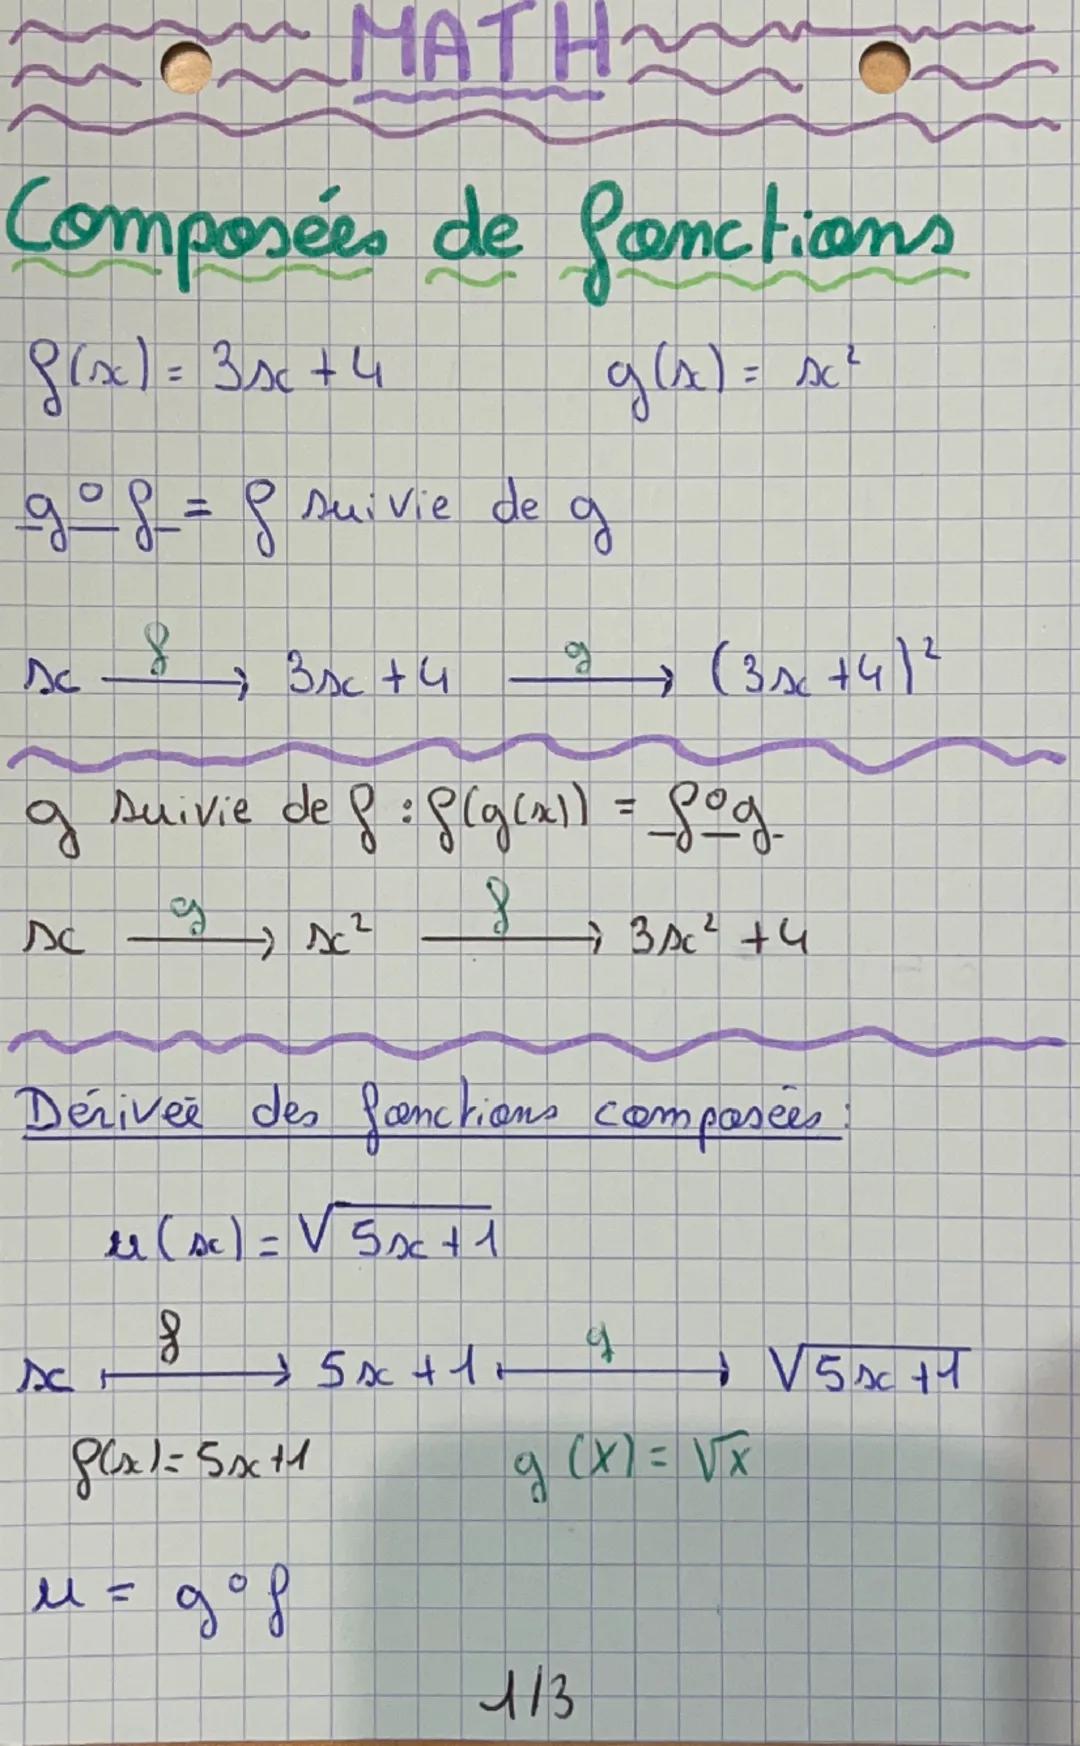 MATH
Composées de fonctions
f(x) = 3x + 4    g(x) = x²
g ∘ f = f suivie de g
x —f→ 3x + 4 —g→ (3x + 4)²
g suivie de f : f(g(x)) = f∘g
x —g→ x² —f→ 3x² + 4
Dérivée des fonctions composées :
u(x) = √(5x + 1)
x ⊢f→ 5x + 1 ⊢g→ √(5x + 1)
f(x) = 5x + 1    g(X) = √X
u = g∘f
1/3